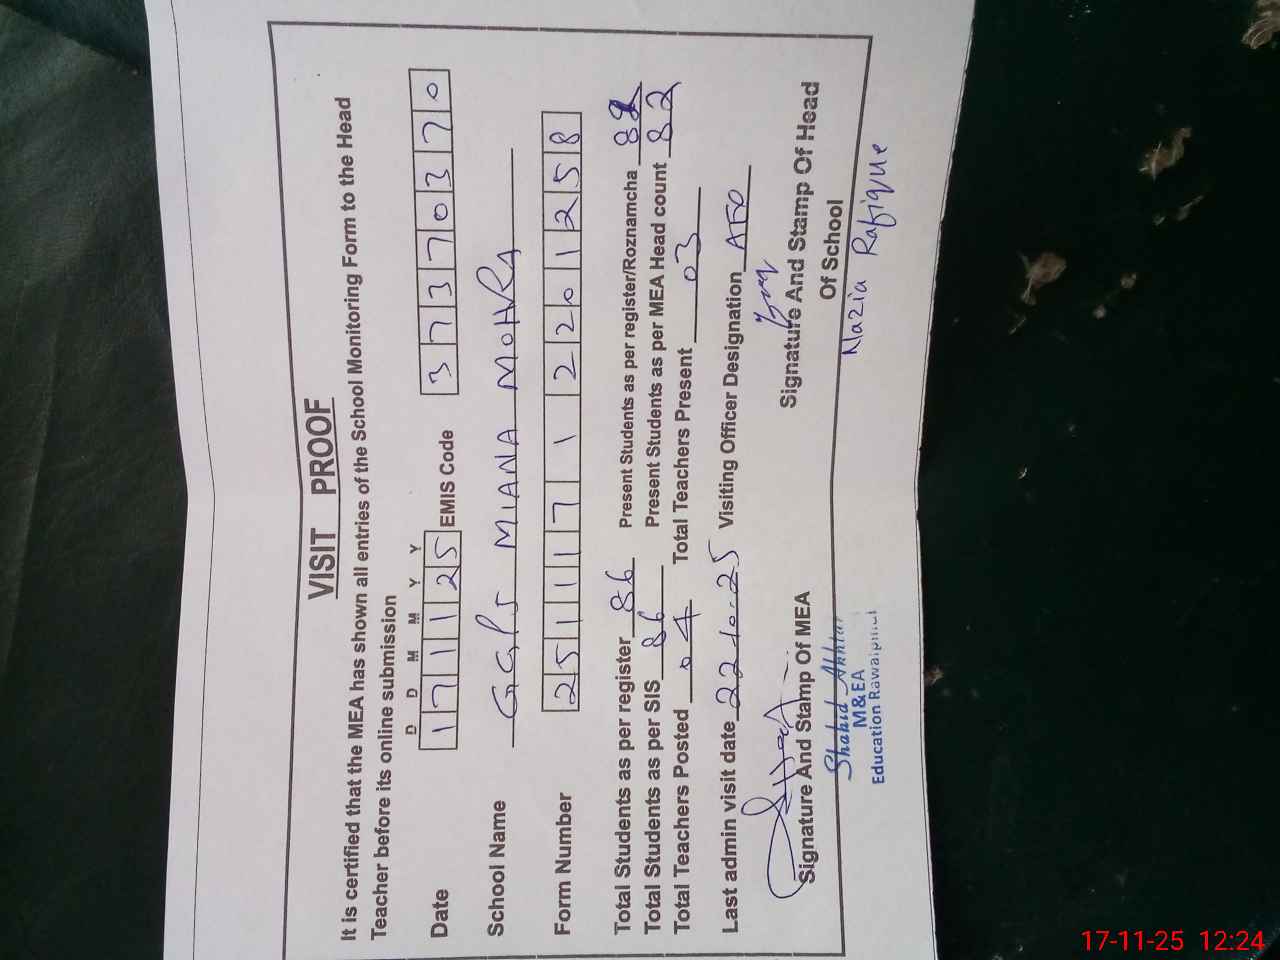 VISIT PROOF
It is certified that the MEA has shown all entries of the School Monitoring Form to the Head
Teacher before its online submission
D D M M Y Y
Date 171125 EMIS Code 37370370
School Name GGPS MIANA MOHRA
Form Number 25111712201258
Total Students as per register 86 Present Students as per register/Roznamcha 82
Total Students as per SIS 86 Present Students as per MEA Head count 82
Total Teachers Posted 04 Total Teachers Present 03
Last admin visit date 22.10.25 Visiting Officer Designation AEO
Signature And Stamp Of MEA Signature And Stamp Of Head
Of School
Shahid Akhtar
M&EA
Education Rawalpindi
Nazia Rafique
17-11-25 12:24